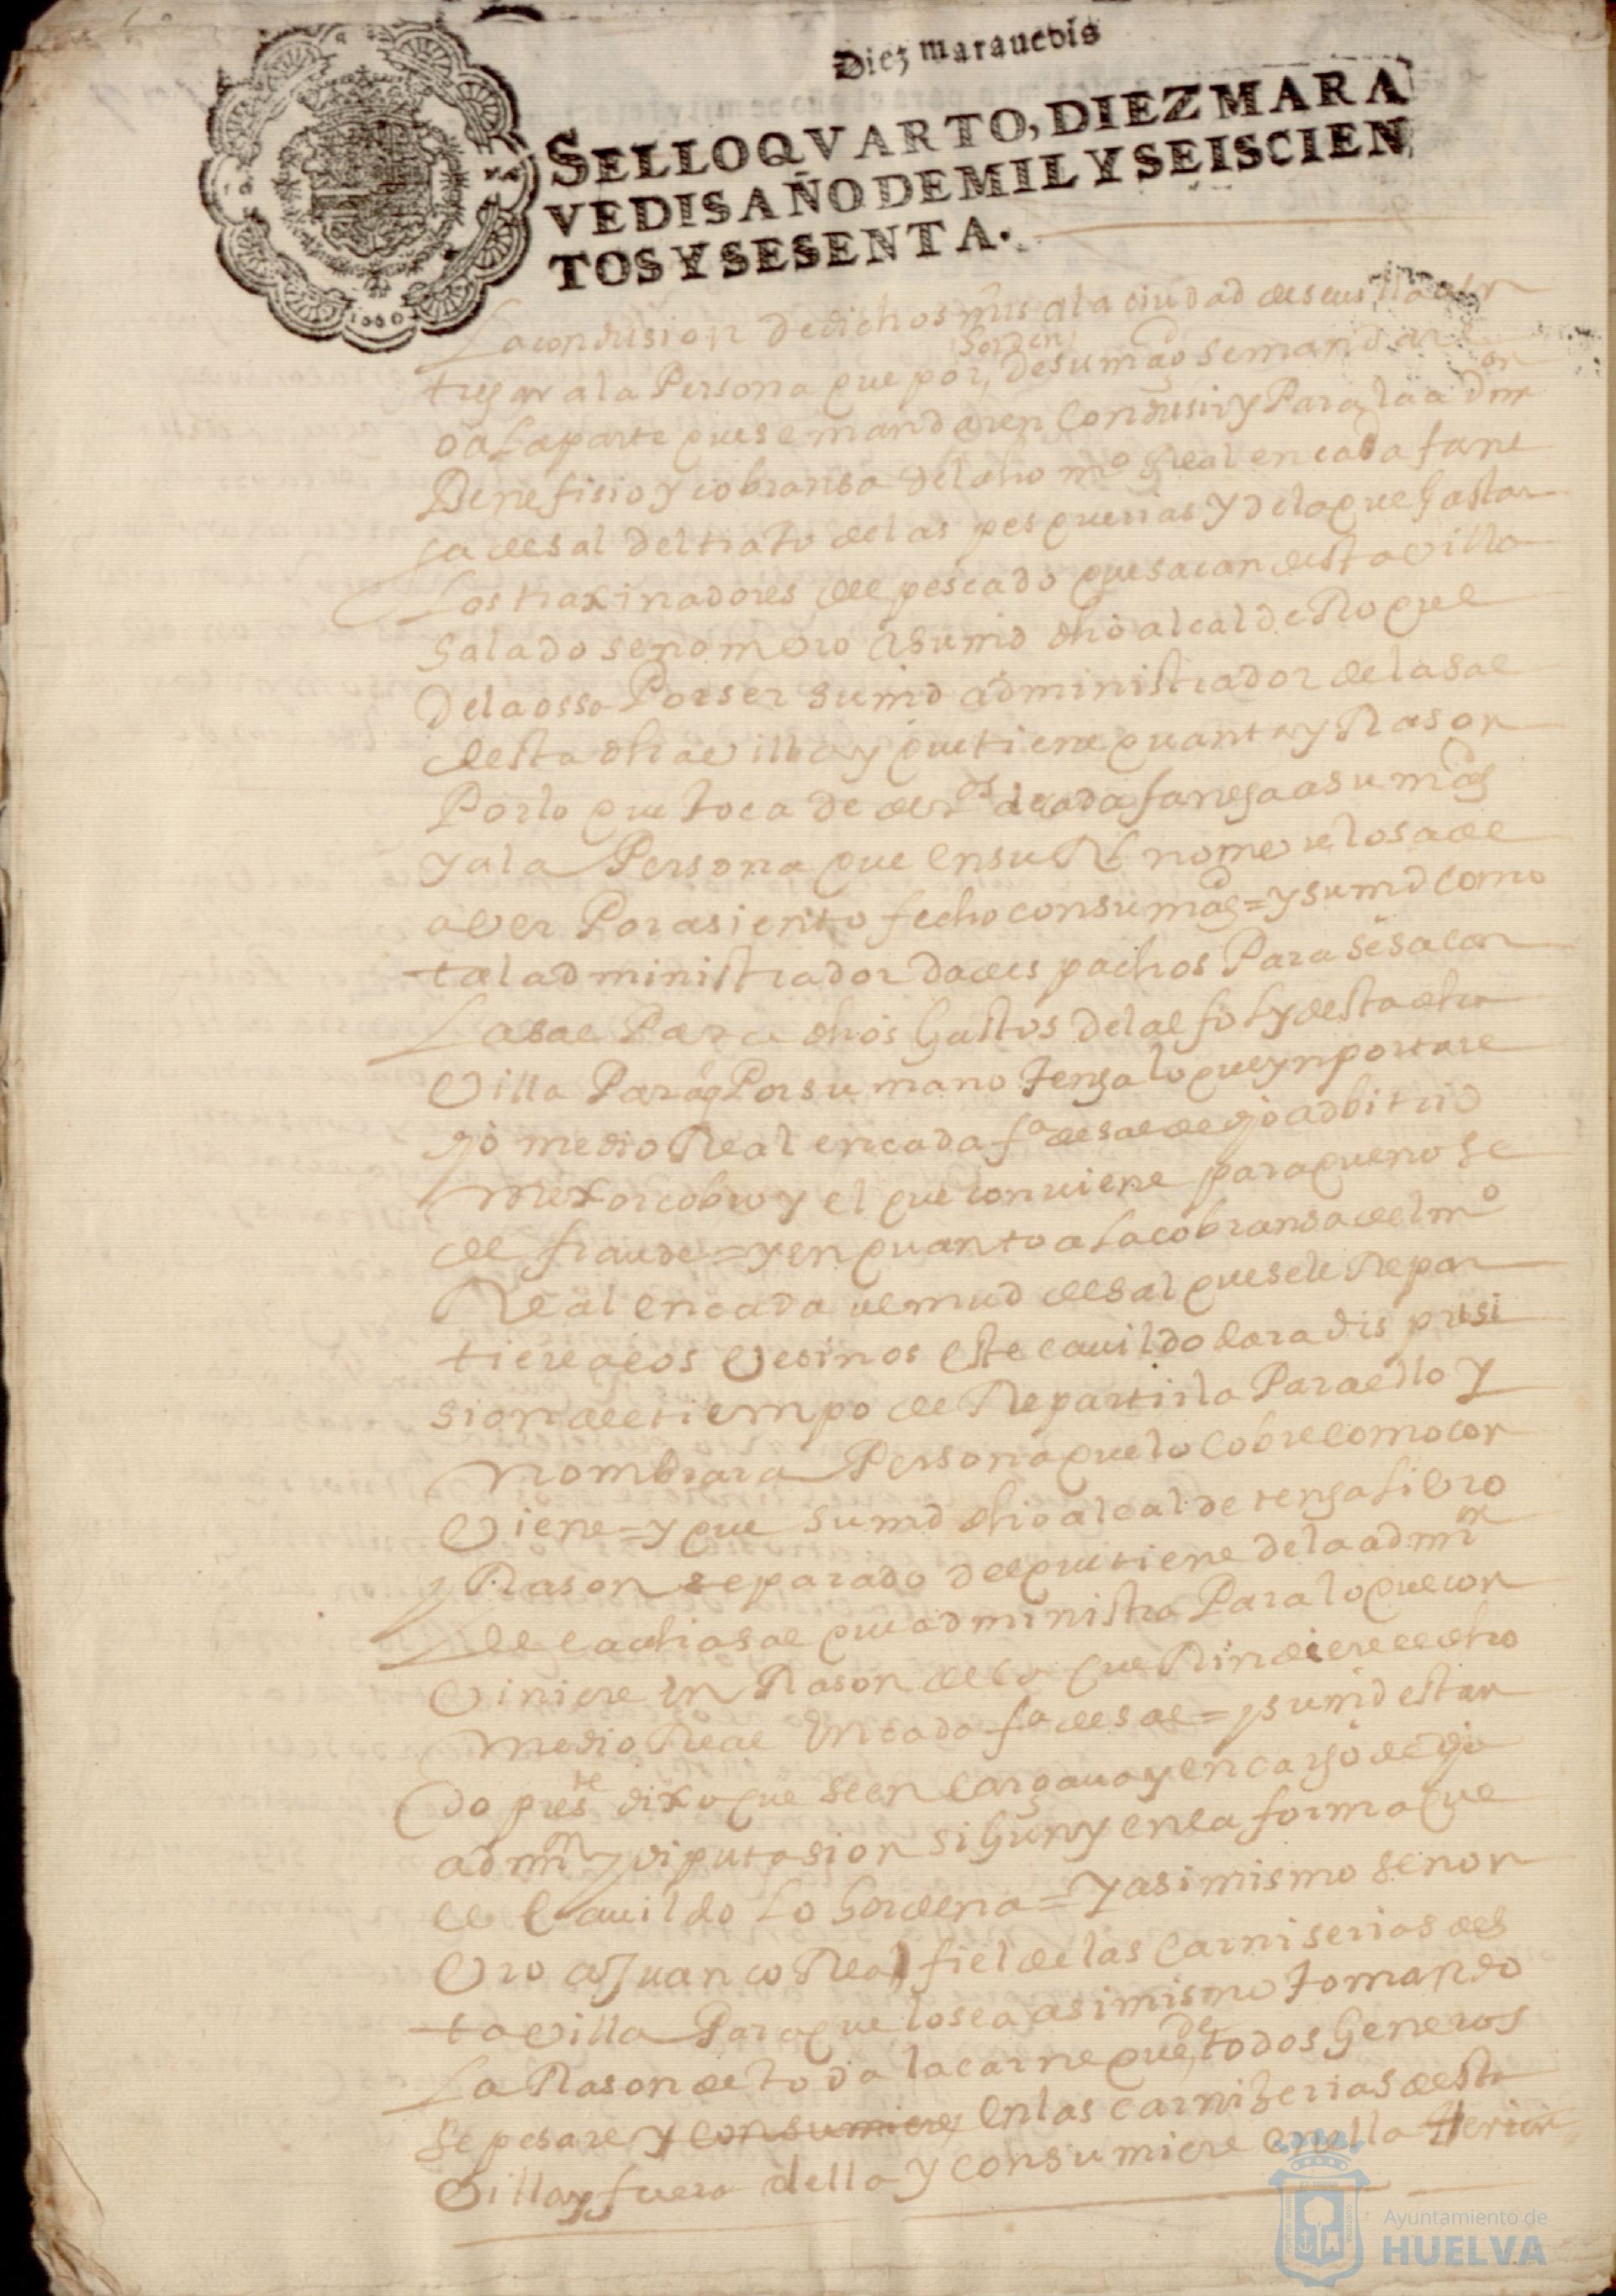 Diez marauedis
SELLO QVARTO, DIEZ MARA
VEDIS AÑO DE MIL Y SEISCIEN
TOS Y SESENTA.
1660
La condusion de dichos mrs a la ciudad de seuilla a en
tregar a la Persona que por horden de su magd se mandare
o a la parte que se mandaren Condusir y Para la admon
Benefisio y cobransa del dho mo Real en cada fane
ga de sal del trato de las pesquerias y de la que gastan
Los traxinadores de pescado que sacan desta villa
salado se nombro a su md dho alcalde Roque
de la ossa Por ser su md administrador de la sal
desta dha villa y que tiene quenta y Rason
Por lo que toca de deros de cada fanega a su magd
y a la Persona que en su Rl nombre los a de
aver Por asiento fecho con su magd = y su md como
tal administrador da despachos Para se sacar
La sal Para dhos gastos del alfoly desta dha
Villa Para q Por su mano tenga lo que ynportare
dho medio Real en cada fa de sal de dho adbitrio
mexor cobro y el que conuiene para que no se
de fraude = y en quanto a la cobransa del mo
Real en cada almud de sal que se le Repar
tiere a los Vesinos este cauildo dara dispusi
sion al tiempo de Repartirla Para ello y
nombrara Persona que lo cobre como con
Viene = y que su md dho alcalde tenga Libro
y Rason separado del que tiene de la admon
de la dha sal que administra Para lo que con
Viniere en Rason de lo que Rindiere el dho
medio Real en cada fa de sal = y su md estan
do preste dixo que se encargaua y encargo de dha
admon y diputasion sigun y en la forma que
el Cauildo Lo hordena = Y asimismo se non
Bro a Juanco Real fiel de las carniserias des
ta villa Para que lo sea asimismo tomando
La Rason de toda la carne que de todos generos
se pesare y consumiere en las carnizerias desta
Villa y fuera della y consumiere en ella
Ayuntamiento de
HUELVA